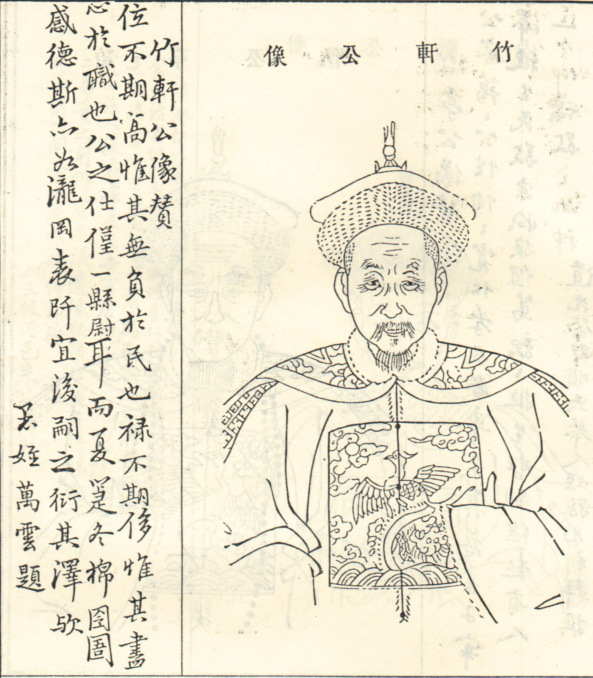 竹軒公像
竹軒公像贊
位不期高惟其無負於民也祿不期侈惟其盡
忠於職也公之仕僅一縣尉耳而夏箑冬棉囹圄
感德斯亦如瀧岡表阡宜後嗣之衍其澤歟
愚姪萬雲題